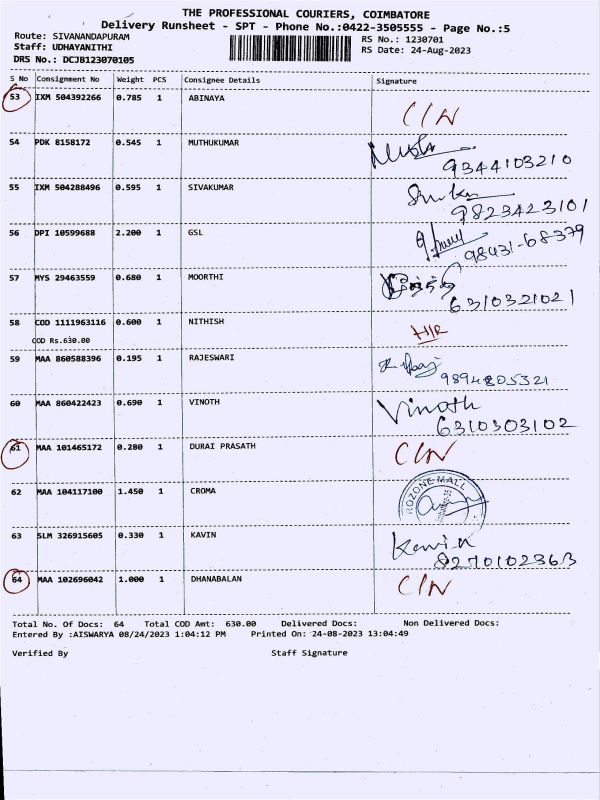 THE PROFESSIONAL COURIERS, COIMBATORE
Delivery Runsheet - SPT - Phone No.:0422-3505555 - Page No.:5
Route: SIVANANDAPURAM
Staff: UDHAYANITHI
DRS No.: DCJB123070105
RS No.: 1230701
RS Date: 24-Aug-2023
S No Consignment No Weight PCS Consignee Details Signature
53 IXM 504392266 0.785 1 ABINAYA C/N
54 PDK 8158172 0.545 1 MUTHUKUMAR
9344103210
55 IXM 504288496 0.595 1 SIVAKUMAR
9823423101
56 DPI 10599688 2.200 1 GSL
98431-68379
57 MYS 29463559 0.680 1 MOORTHI
6310321021
58 COD 1111963116 0.600 1 NITHISH H/R
COD Rs.630.00
59 MAA 860588396 0.195 1 RAJESWARI
9894205321
60 MAA 860422423 0.690 1 VINOTH Vinoth
6310303102
61 MAA 101465172 0.280 1 DURAI PRASATH C/N
62 MAA 104117100 1.450 1 CROMA ROZONE MALL
63 SLM 326915605 0.330 1 KAVIN Kavin
8270102363
64 MAA 102696042 1.000 1 DHANABALAN C/N
Total No. Of Docs: 64 Total COD Amt: 630.00 Delivered Docs: Non Delivered Docs:
Entered By :AISWARYA 08/24/2023 1:04:12 PM Printed On: 24-08-2023 13:04:49
Verified By Staff Signature